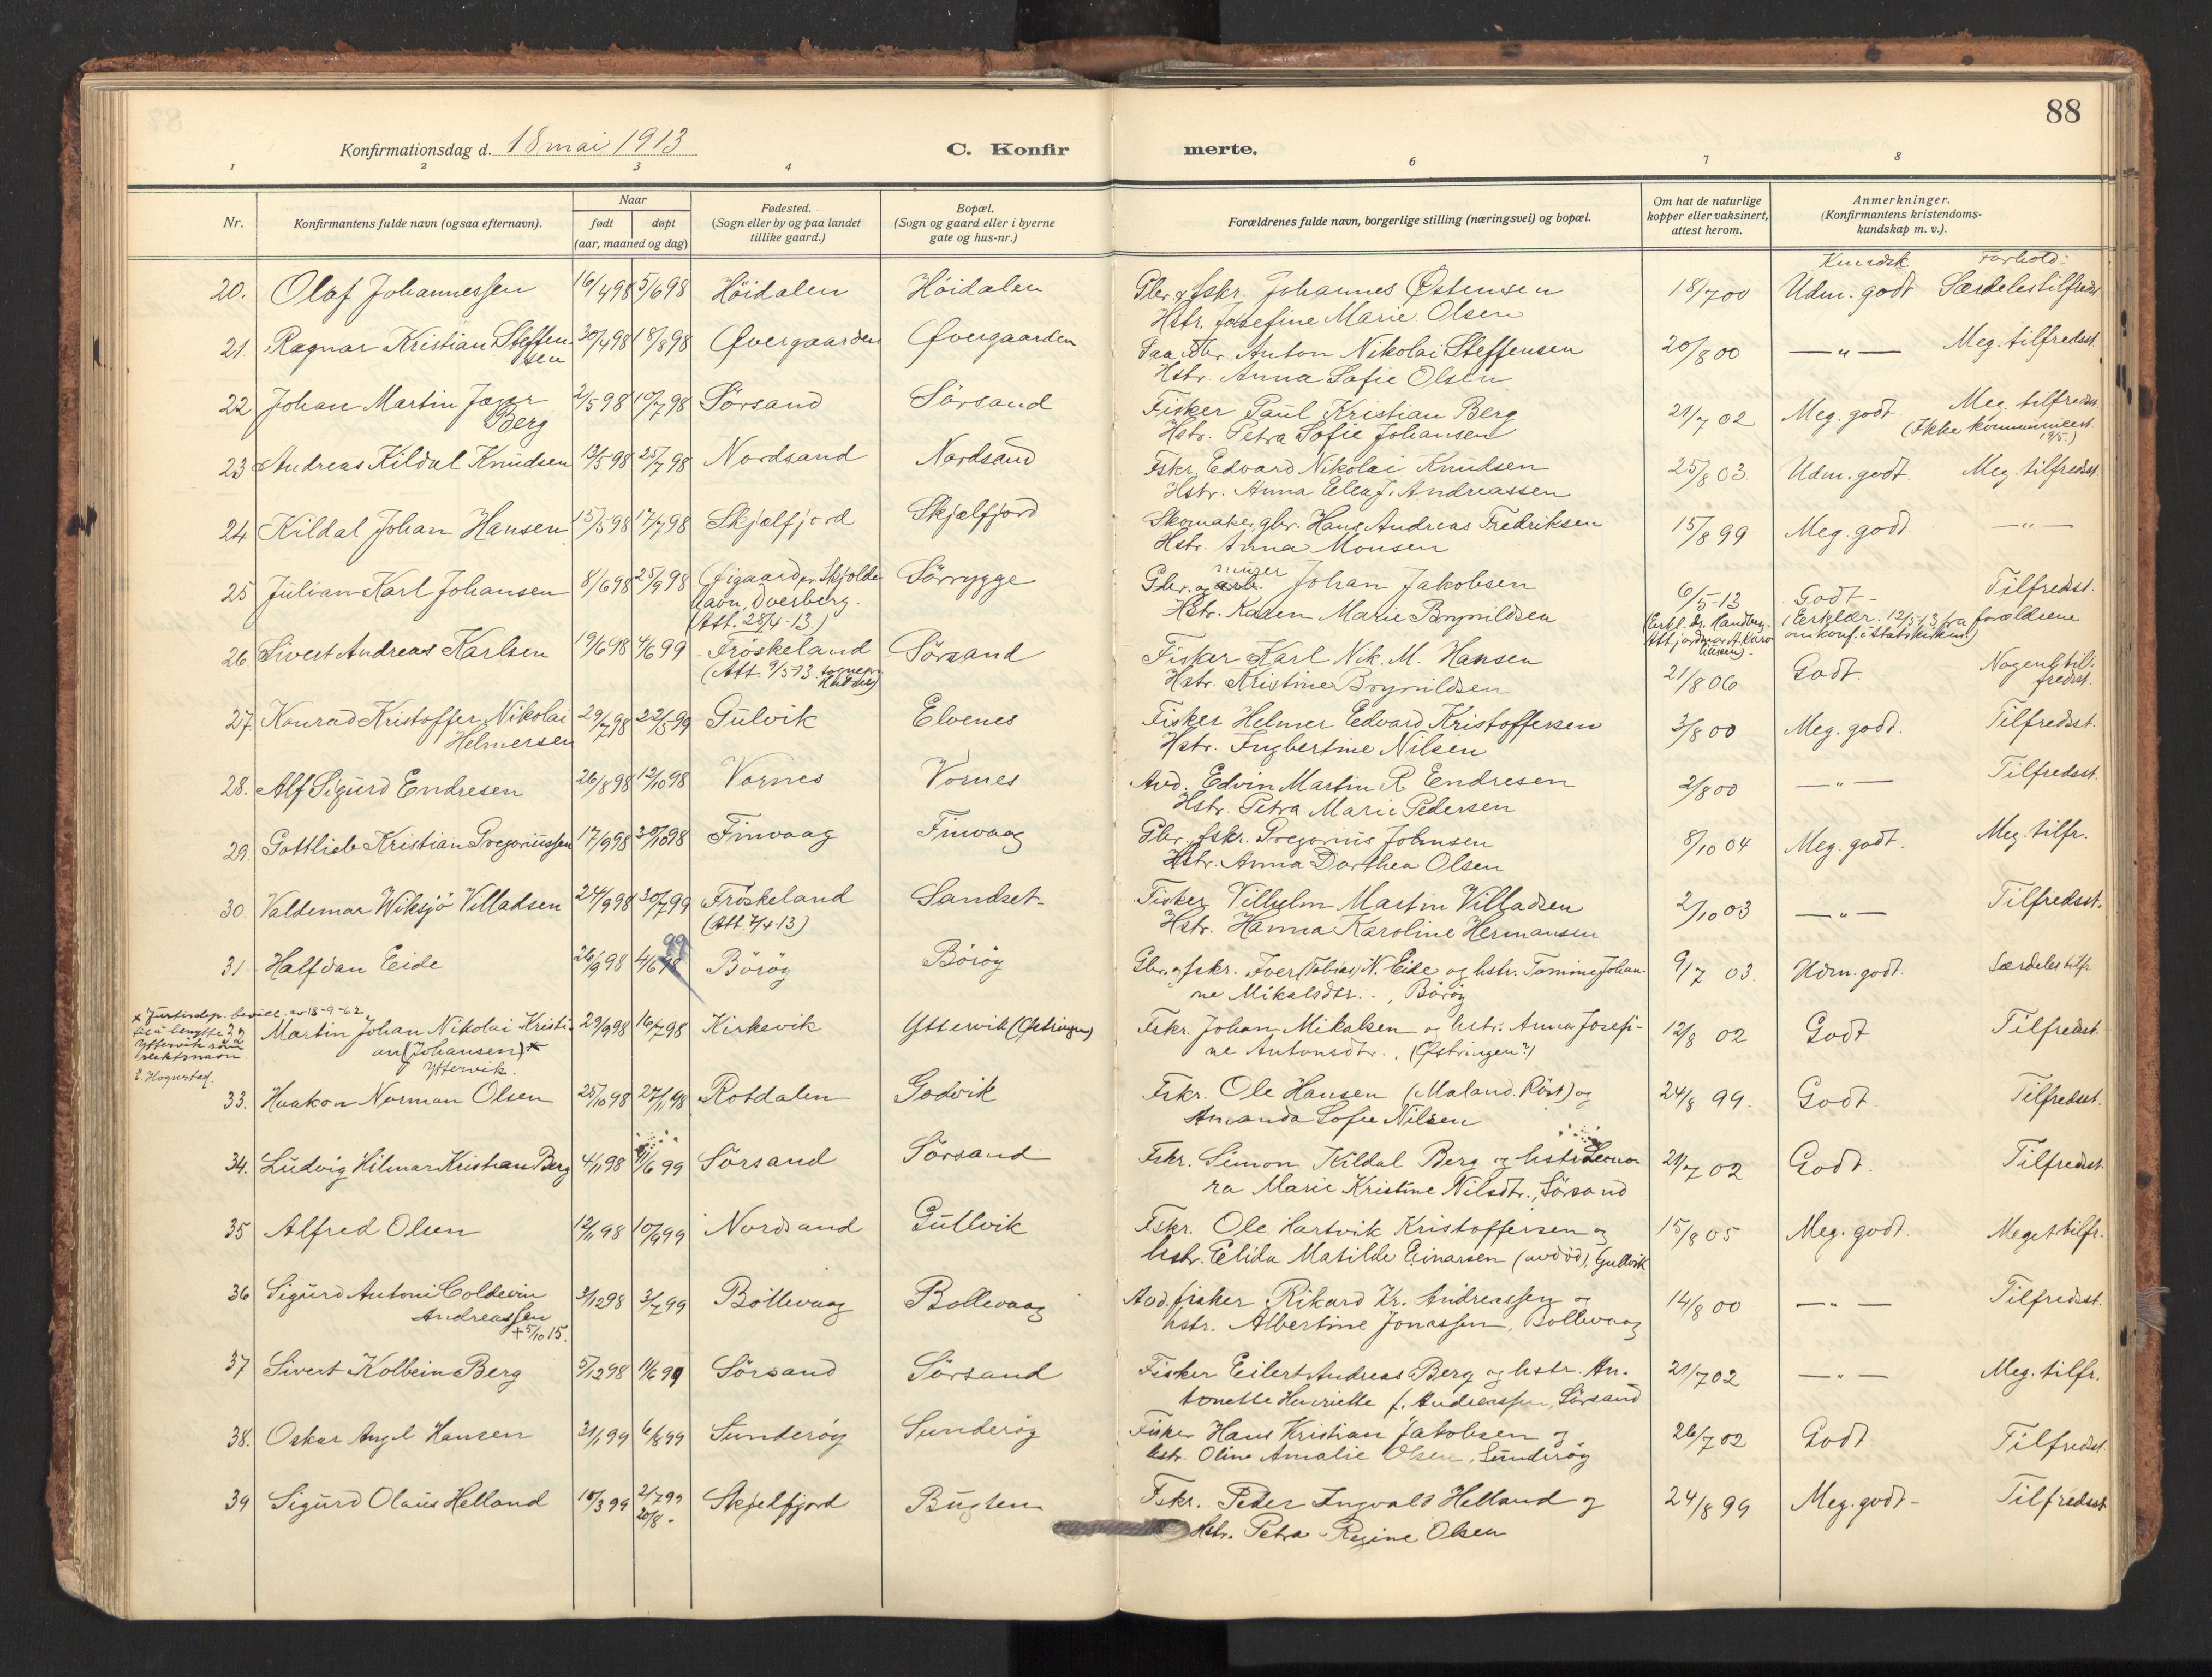 88
Konfirmationsdag d. 18 mai 1913 C. Konfirmerte.
1 2 3 4 6 7 8
Nr. Konfirmantens fulde navn (ogsaa efternavn). Naar født døpt (aar, maaned og dag) Fødested. (Sogn eller by og paa landet tillike gaard.) Bopæl. (Sogn og gaard eller i byerne gate og hus-nr.) Forældrenes fulde navn, borgerlige stilling (næringsvei) og bopæl. Om hat de naturlige kopper eller vaksinert, attest herom. Anmerkninger. (Konfirmantens kristendoms-kundskap m. v.).
Kundsk. Forhold:
20. Olaf Johannessen 16/4 98 5/6 98 Höidalen Höidalen Gbr. & fskr. Johannes Østensen 18/7 00 Udm. godt Særdeles tilfredst.
Hstr. Josefine Marie Olsen
21. Ragnar Kristian Steffen- 30/4 98 18/8 98 Øvergaarden Øvergaarden Gaardbr. Anton Nikolai Steffensen 20/8 00 — " — Meg. tilfredsst.
sen Hstr. Anna Sofie Olsen
22 Johan Martin 2/5 98 10/7 98 Sörsand Sörsand Fisker Paul Kristian Berg 21/7 02 Meg. godt Meg. tilfredsst.
Berg Hstr. Petra Sofie Johansen (Ikke kommunicert 19/5.)
23 Andreas Kildal Knudsen 13/5 98 25/7 98 Nordsand Nordsand Fskr. Edvard Nikolai Knudsen 25/8 03. Udm. godt. Meg. tilfredsst
Hstr. Anna Elea J. Andreassen
24 Kildal Johan Hansen 15/5 98 17/7 98 Skjælfjord Skjælfjord Skomaker, gbr. Hans Andreas Fredriksen 15/8 99 Meg. godt. — " —
Hstr. Anna Monsen
25 Julian Karl Johansen 8/6 98 25/9 98 Øigaard pr. Skjolde- Sörrygge Gbr. og murer Johan Jakobsen 6/5-13 Godt - Tilfredsst.
havn, Dverberg. Hstr. Karen Marie Brynildsen
(Att. 28/4-13.) (Erklær. 12/5-13 fra forældrene
om konf. i statskirken)
26. Sivert Andreas Karlsen 19/6 98 4/6 99 Fröskeland Sörsand Fisker Karl Nik. M. Hansen 21/8 06 Godt. Noget til-
(Att. 9/5-13 Hstr. Kristine Brynildsen fredsst.
27. Konrad Kristoffer Nikolai 29/7 98 22/5 99 Gulvik Elvenes Fisker Helmer Edvard Kristoffersen 3/8 00 Meg. godt. Tilfredsst.
Helmersen Hstr. Ingbertine Nilsen
28. Alf Sigurd Endresen 26/8 98 12/10 98 Vornes Vornes Avd. Edvin Martin R. Endresen 2/8 00 — " — Tilfredsst.
Hstr. Petra Marie Pedersen
29. Gottlieb Kristian Gregoriussen 17/9 98 30/10 98 Finvaag Finvaag Gbr. fskr. Gregorius Johnsen 8/10 04 Meg. godt. Meg. tilfr.
Hstr. Anna Dorthea Olsen
30. Valdemar Wiksjö Villadsen 24/9 98 30/7 99 Fröskeland Sandset. Fisker Vilhelm Martin Villadsen 2/10 03 — " — Tilfredsst.
(Att. 7/4-13) Hstr. Hanna Karoline Hermansen
99
31 Halfdan Eide 26/9 98 4/6 98 Böröy Böröy Gbr. og fskr. Iver (Tobias) N. Eide og hstr. Tomine Johan- 9/7 03. Udm. godt. Særdeles tilfr.
ne Mikalsdtr. ., Böröy
x Justisdep. bevill. av 18-9-62
til å benytte
Yttervik som
slektsnavn.
E. Hognestad.
Martin Johan Nikolai Kristi- 29/9 98 16/7 98 Kirkevik Yttervik (Østringen) Fskr. Johan Mikalsen og hstr. Anna Josefi- 12/8 02 Godt Tilfredsst.
an (Johansen) x ne Antonsdtr. . (Østringen?)
Yttervik.
33. Haakon Norman Olsen 25/10 98 27/11 98 Rotdalen Godvik Fskr. Ole Hansen (Maland. Röst) og 24/8 99. Godt Tilfredsst.
Amanda Sofie Nilsen
34. Ludvig Hilmar Kristian Berg 4/11 98 11/6 99 Sörsand Sörsand Fskr. Simon Kildal Berg og hstr. Leono- 21/7 02 Godt. Tilfredsst.
ra Marie Kristine Nilsdtr., Sörsand
35 Alfred Olsen 12/11 98 10/9 99 Nordsand Gullvik Fskr. Ole Hartvik Kristoffersen og 15/8 05 Meg. godt. Meget tilfr.
hstr. Elida Matilde Einarsen (avdöd), Gullvik
36 Sigurd Antoni Coldevin 3/12 98 3/7 99 Böllevaag Bollevaag Avd. fisker Rikard Kr. Andreassen og 14/8 00 — " — Tilfredsst.
Andreassen hstr. Albertine Jonassen, Bollevaag
+ 5/10 15.
37 Sivert Kolbein Berg 5/12 98 11/6 99 Sörsand Sörsand Fisker Eilert Andreas Berg og hstr. An- 21/7 02 — " — Meg. tilfr.
tonette Henriette f. Andreassen, Sörsand
38. Oskar Angel Hansen 31/1 99 6/8 99 Sunderöy Sunderöy Fisker Hans Kristian Jakobsen og 26/7 02 Godt Tilfredsst
hstr. Oline Amalie Olsen, Sunderöy
39 Sigurd Olaus Helland 10/3 99 2/7 99 Skjelfjord Bugten Fskr. Peder Ingvald Helland og 24/8 99 Meg. godt - Tilfredsst
20/8 - Hstr. Petra Regine Olsen